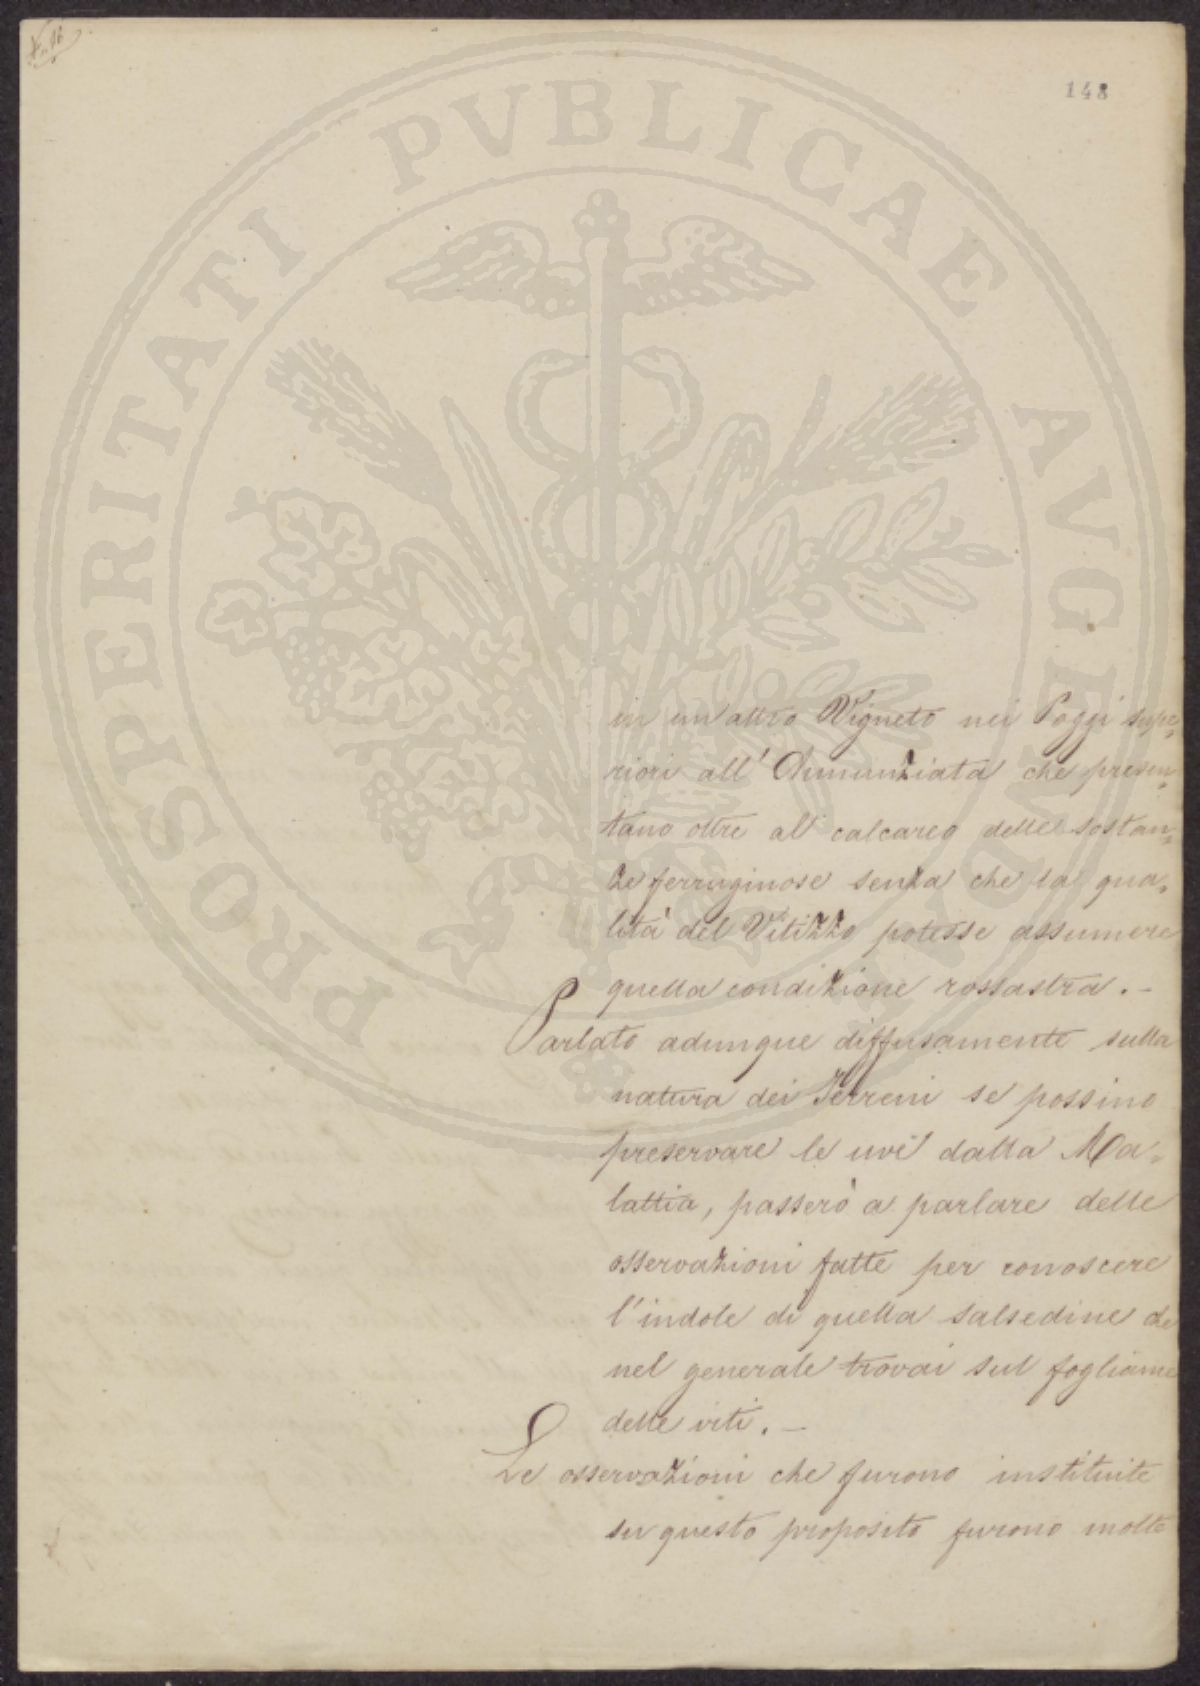 148
PROSPERITATI PVBLICAE AVGENDAE
in un'altro Vigneto nei Poggi supe-
riori all'Annunziata che presen-
tano oltre al calcareo delle sostan-
ze ferruginose senza che la qua-
lità del Vitizzo potesse assumere
quella condizione rossastra. -
Parlato adunque diffusamente sulla
natura dei Terreni se possino
preservare le uve dalla Ma-
lattia, passerò a parlare delle
osservazioni fatte per conoscere
l'indole di quella salsedine che
nel generale trovai sul fogliame
delle viti. -
Le osservazioni che furono instituite
su questo proposito furono molte